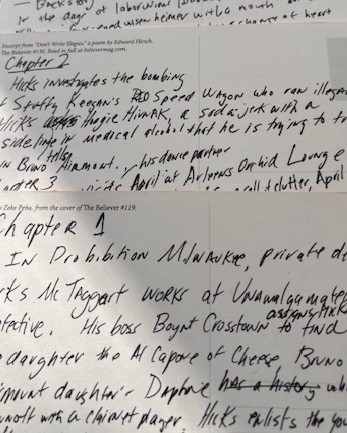 Backs
in the day of laborunion
wisenheimer with a mouth
change of heart
Excerpt from "Don't Write Elegies," a poem by Edward Hirsch,
The Believer #136. Read in full at believermag.com.
Chapter 2
Hicks investigates the bombing
f Stuffy Keegan's REO Speed Wagon who ran illegal
Hicks Hoagie Hivnak, a soda jerk with a
sideline in medical alcohol that he is trying to
Bruno Airmont... his dance partner
April at Arleen's Orchid Lounge
clutter, April
Zeke Peña, from the cover of The Believer #129.
Chapter 1
In Prohibition Milwaukee, private de
ks McTaggart works at Unamalgamated
tective. His boss Boynt Crosstown assigns Hicks to find
daughter the Al Capone of Cheese, Bruno
irmount daughter Daphne has a history who
runoff with a clarinet player. Hicks enlists the you